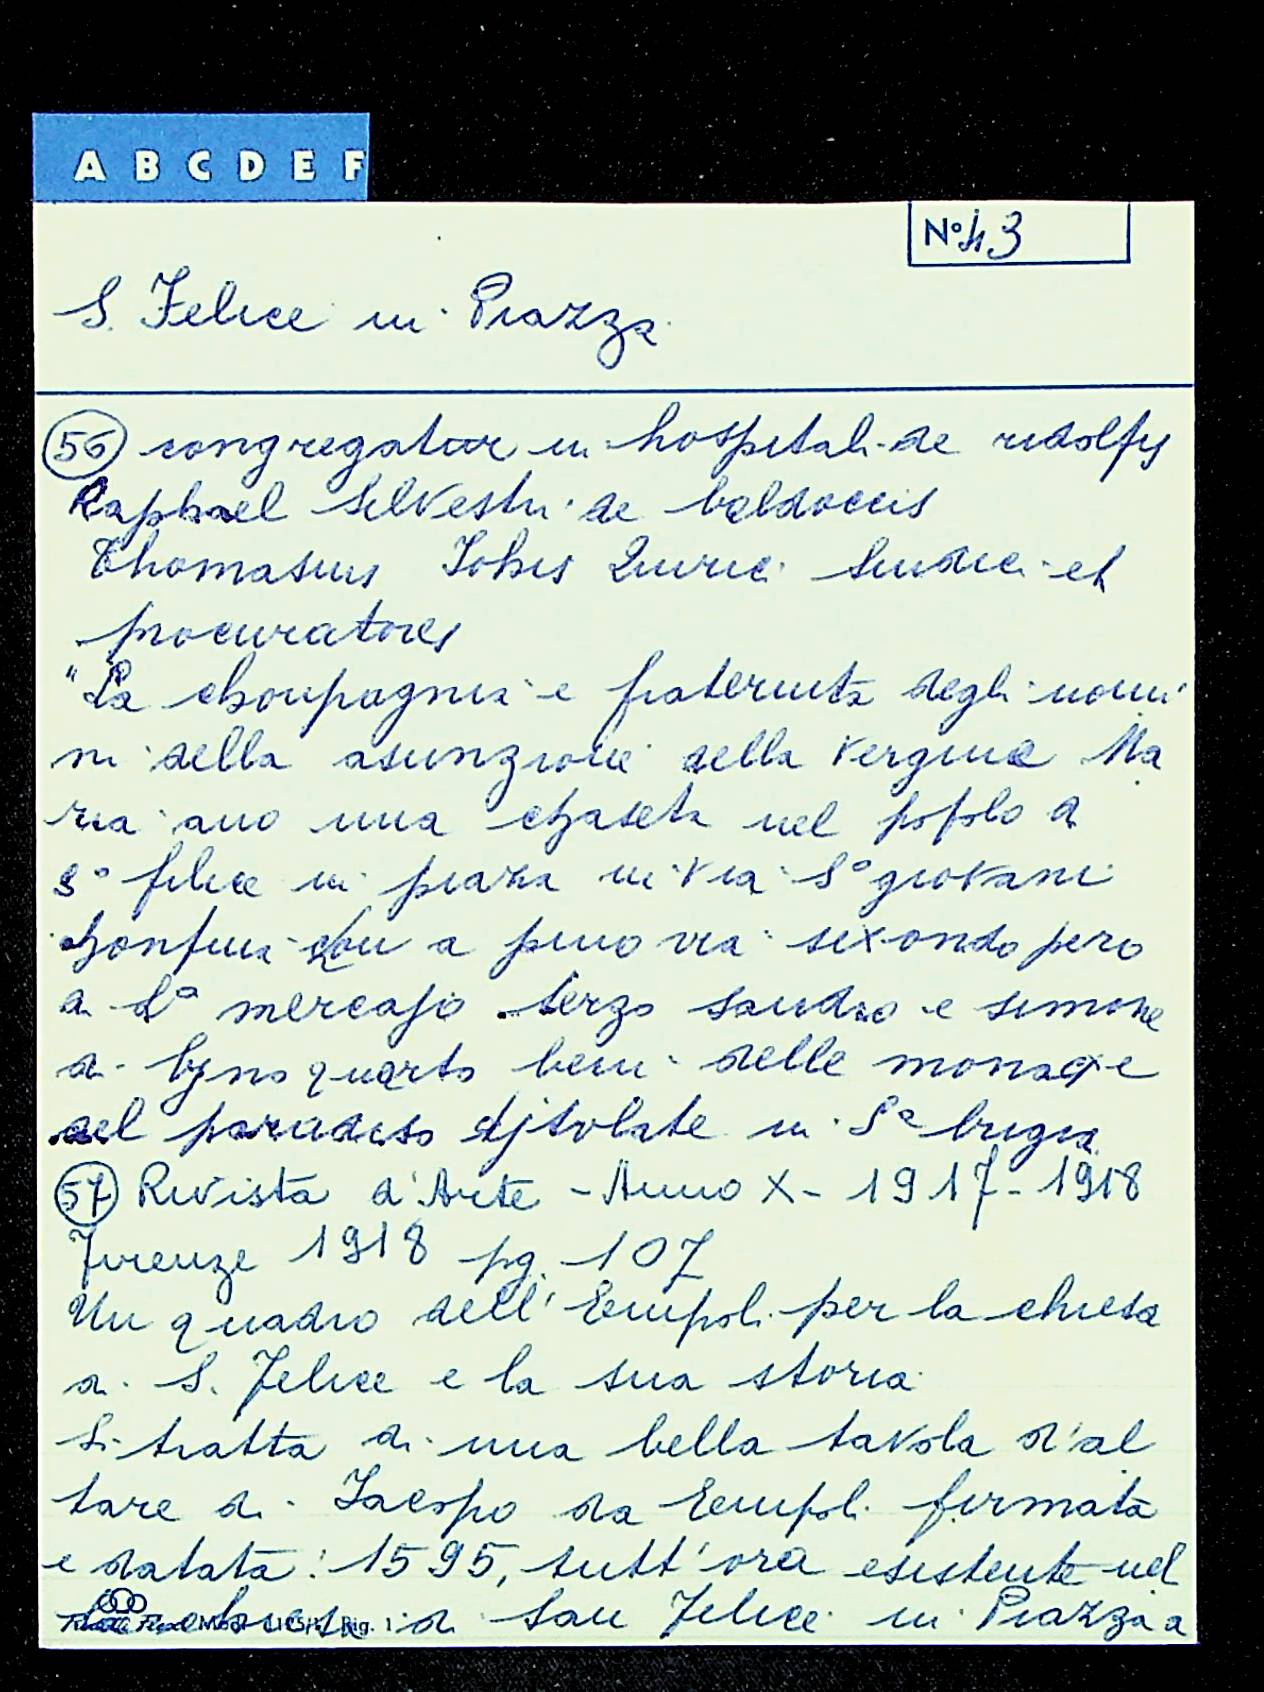 A B C D E F
N° 43
S. Felice in Piazza
56 congregatur in hospitali de ridolfis
Raphael Silvestri de baldoccis
Thomasius Johis Quirici Sindici et
procuratores
"La chonpagnia e fraternita degli uomi
ni della asunzione della Vergine Ma
ria ano una chaseta nel popolo di
S° felice in piaza in via S° giovani
chonfina chon a primo via sexondo piero
di S° mercajo terzo sandro e simone
di quarto beni delle monaxe
del paradiso djtolate in S° brigia
57 Rivista d'Arte - Anno X - 1917-1918
Firenze 1918 pg. 107
Un quadro dell'Empoli per la chiesa
di S. Felice e la sua storia
Si tratta di una bella tavola d'al
tare di Jacopo da Empoli firmata
e datata: 1595, tutt'ora esistente nel
la chiesa di San Felice in Piazza a